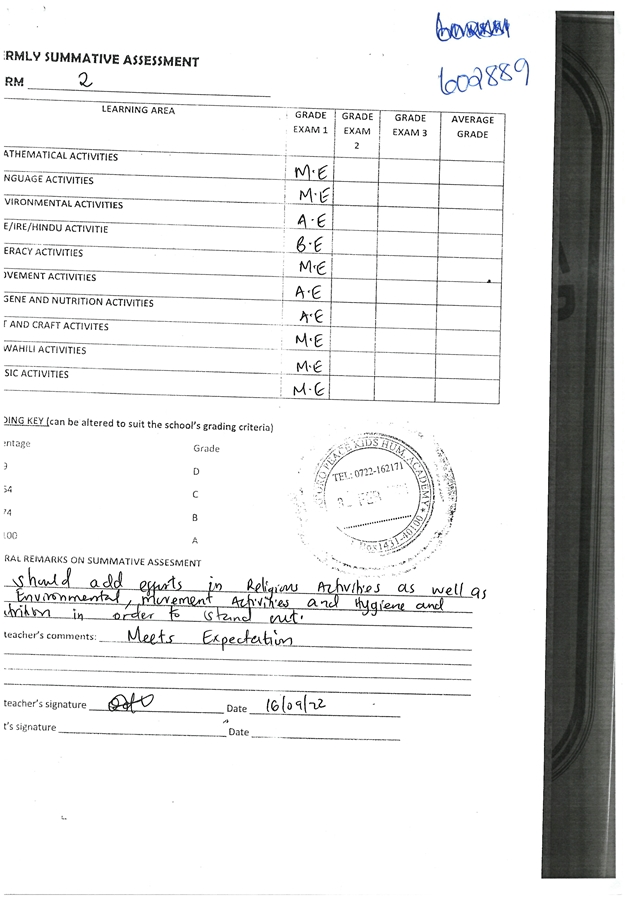 602889
ERMLY SUMMATIVE ASSESSMENT
RM 2
LEARNING AREA GRADE EXAM 1 GRADE EXAM 2 GRADE EXAM 3 AVERAGE GRADE
ATHEMATICAL ACTIVITIES M.E
NGUAGE ACTIVITIES M.E
VIRONMENTAL ACTIVITIES A.E
E/IRE/HINDU ACTIVITIE B.E
ERACY ACTIVITIES M.E
OVEMENT ACTIVITIES A.E
GENE AND NUTRITION ACTIVITIES A.E
T AND CRAFT ACTIVITES M.E
WAHILI ACTIVITIES M.E
SIC ACTIVITIES M.E
DING KEY (can be altered to suit the school's grading criteria)
entage Grade
9 D
64 C
74 B
100 A
PEACE KIDS HUM. ACADEMY
TEL: 0722-162171
FEB
1431-40100
RAL REMARKS ON SUMMATIVE ASSESMENT
Should add efforts in Religious Activities as well as
Environmental, Movement Activities and Hygiene and
in order to stand out.
teacher's comments: Meets Expectation
teacher's signature Date 16/09/22
t's signature Date